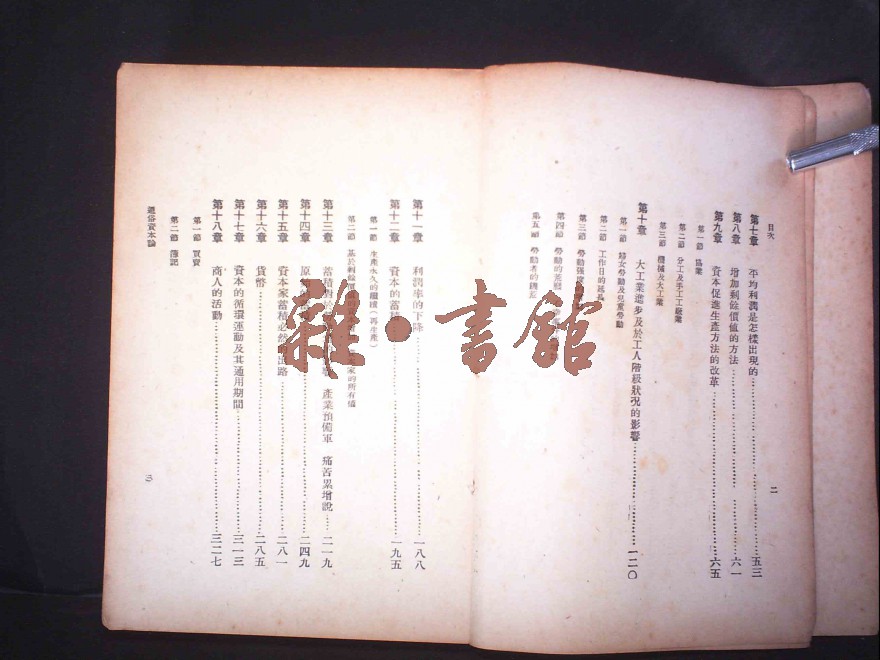 目次
第七章 平均利潤是怎樣出現的 五三
第八章 增加剩餘價值的方法 六一
第九章 資本促進生產方法的改革 六五
第一節 協業
第二節 分工及手工工廠業
第三節 機械及大工業
第十章 大工業進步及於工人階級狀況的影響 一二〇
第一節 婦女勞動及兒童勞動
第二節 工作日的延長
第三節 勞動強度的
第四節 勞動的
第五節 勞動者的
二
第十一章 利潤率的下降 一八八
第十二章 資本的蓄積 一九五
第一節 生產永久的繼續(再生產)
第二節 基於剩餘價值的 家的所有權
第十三章 蓄積對於 產業預備軍 痛苦累增說 二一九
第十四章 原 二四九
第十五章 資本家蓄積必然的 路 二八一
第十六章 貨幣 二八五
第十七章 資本的循環運動及其通用期間 三一三
第十八章 商人的活動 三二七
第一節 買賣
第二節 簿記
通俗資本論
三
雜·書館